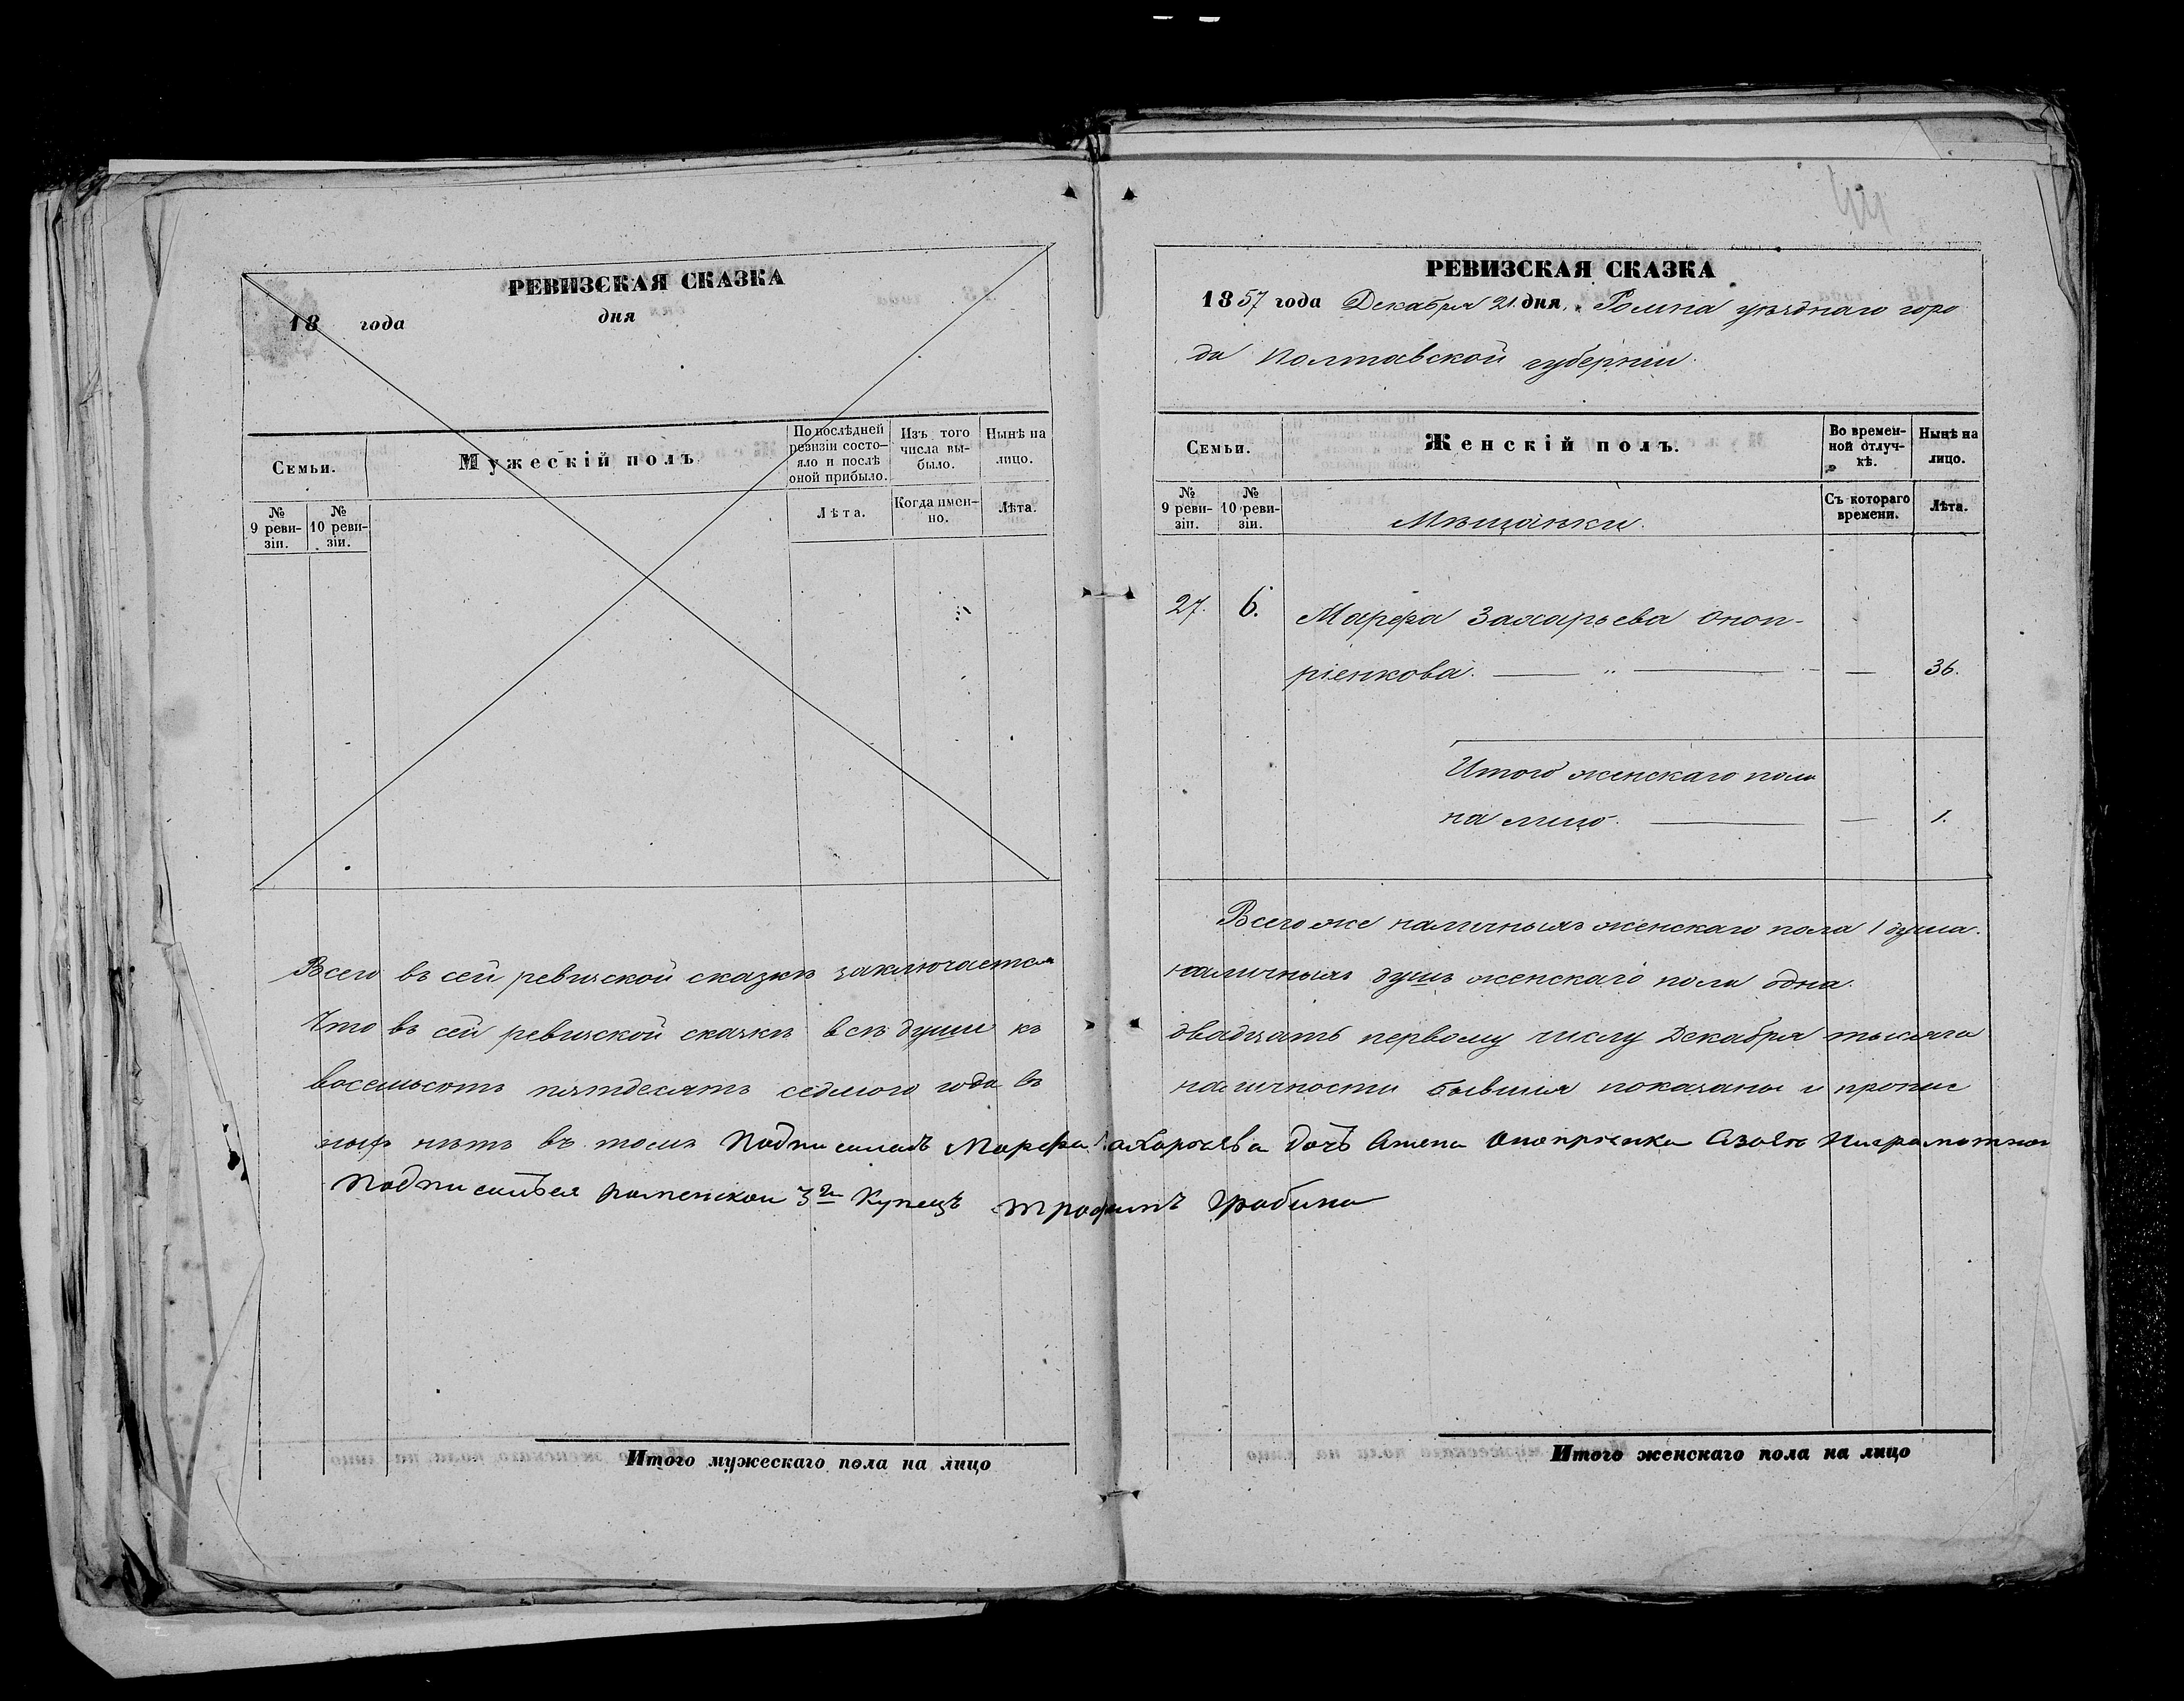 РЕВИЗСКАЯ СКАЗКА
18 года дня
Семьи.
Мужескій полъ
По послѣдней ревизіи состо-
яло и послѣ
оной прибыло.
Изъ того
числа вы-
было.
Нынѣ на
лицо.
№
9 реви-
зіи.
№
10 реви-
зіи.
Лѣта.
Когда имен-
но.
Лѣта.
РЕВИЗСКАЯ СКАЗКА
1857 года Декабря 21. дня. Ромна уѣзднаго горо
да Полтавской губерніи.
Семьи.
Женскій полъ.
Во времен-
ной отлуч-
кѣ.
Нынѣ на
лицо.
№
9 реви-
зіи.
№
10 реви-
зіи.
Мѣщанки.
Съ котораго
времени.
Лѣта.
27. 6. Марфа Захарьева Оноп-
ріенкова. — „ — — 36.
Итого женскаго пола
на лицо. — — 1.
Всего же наличныхъ женскаго пола 1 душа.
Всего въ сей ревизской сказкѣ заключается наличныхъ душъ женскаго пола одна.
Что въ сей ревизской сказкѣ всѣ души къ двадцать первому числу Декабря тысяча
восемьсотъ пятдесятъ седмого года въ наличности бывшія показаны и пропис
ныхъ нѣтъ въ томъ Подписалась Марфа Захарчева дочь Онопрѣенка
Подписался роменской 3й Купецъ трофимъ
Итого мужескаго пола на лицо
Итого женскаго пола на лицо